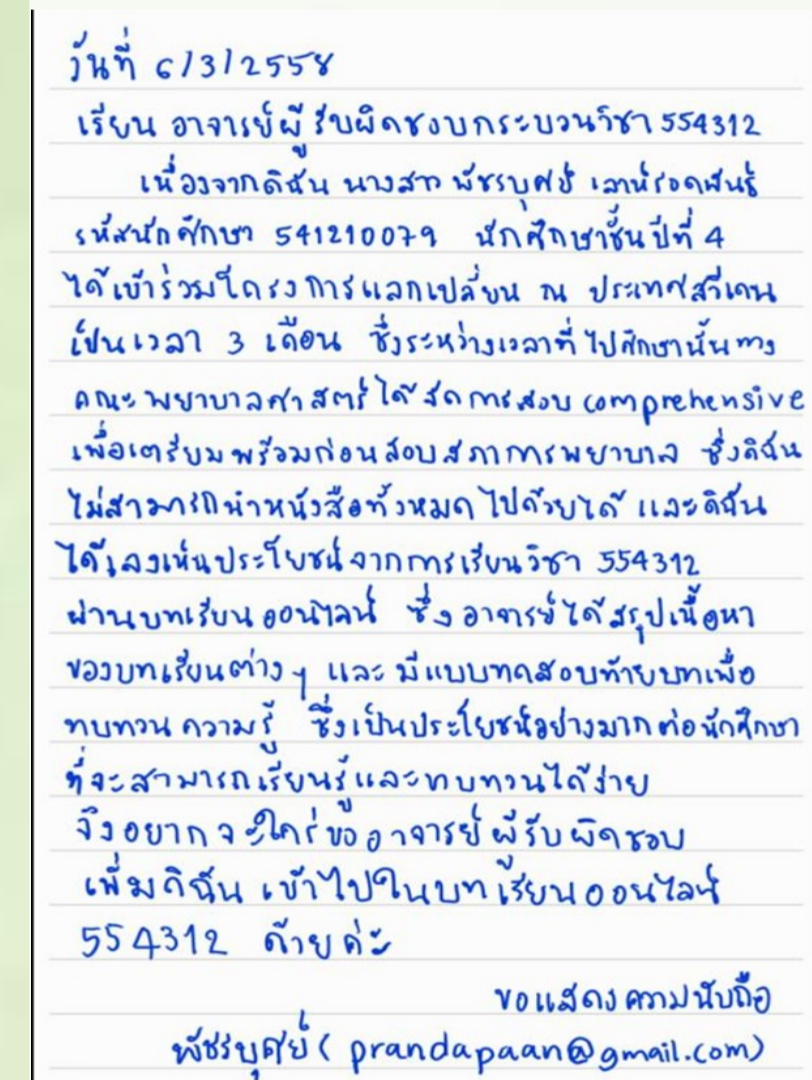 วันที่ 6/3/2558
เรียน อาจารย์ผู้รับผิดชอบกระบวนวิชา 554312
เนื่องจากดิฉัน นางสาว พัชรบุศย์ เลาห์รอดพันธุ์
รหัสนักศึกษา 541210079 นักศึกษาชั้นปีที่ 4
ได้เข้าร่วมโครงการแลกเปลี่ยน ณ ประเทศสวีเดน
เป็นเวลา 3 เดือน ซึ่งระหว่างเวลาที่ไปศึกษานั้นทาง
คณะพยาบาลศาสตร์ได้จัดการสอบ comprehensive
เพื่อเตรียมพร้อมก่อนสอบสภาการพยาบาล ซึ่งดิฉัน
ไม่สามารถนำหนังสือทั้งหมดไปด้วยได้ และดิฉัน
ได้เลงเห็นประโยชน์จากการเรียนวิชา 554312
ผ่านบทเรียนออนไลน์ ซึ่งอาจารย์ได้สรุปเนื้อหา
ของบทเรียนต่าง ๆ และมีแบบทดสอบท้ายบทเพื่อ
ทบทวนความรู้ ซึ่งเป็นประโยชน์อย่างมากต่อนักศึกษา
ที่จะสามารถเรียนรู้และทบทวนได้ง่าย
จึงอยากจะใคร่ขออาจารย์ผู้รับผิดชอบ
เพิ่มดิฉันเข้าไปในบทเรียนออนไลน์
554312 ด้วยค่ะ
ขอแสดงความนับถือ
พัชรบุศย์ (prandapaan@gmail.com)